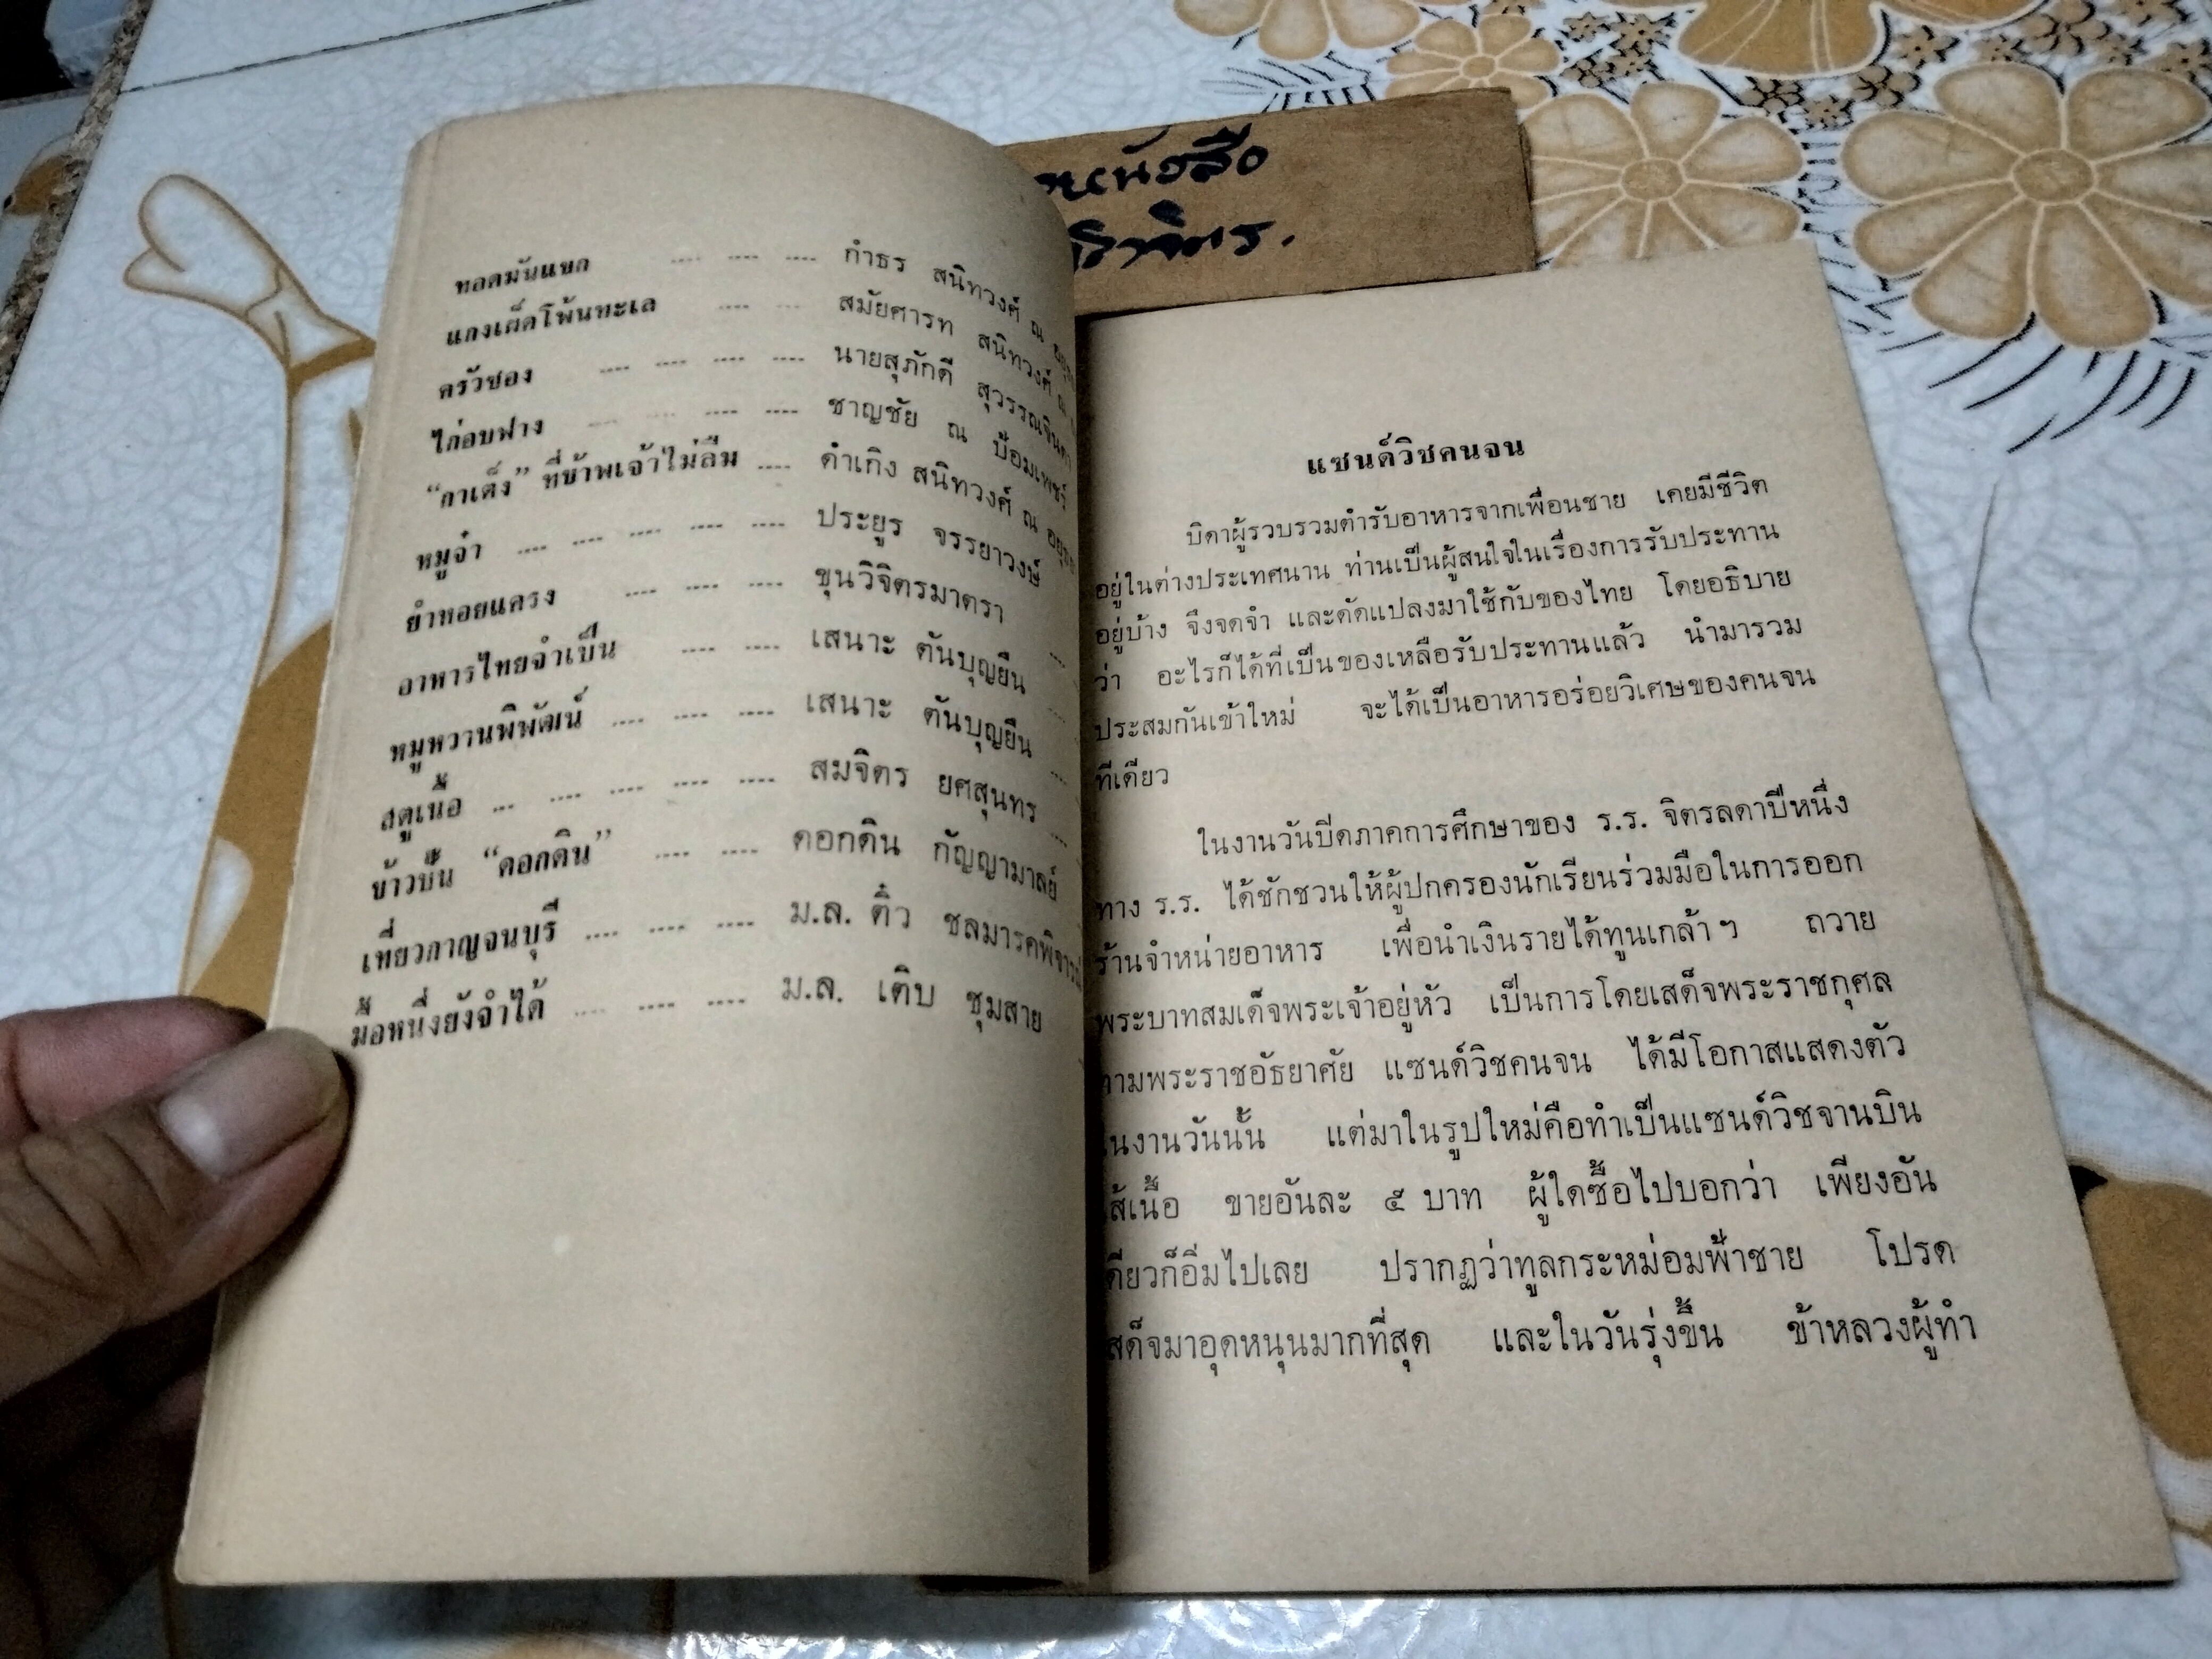 นหนังสือ
ศิริจิตร.
ทอดมันแขก .... .... .... กำธร สนิทวงศ์ ณ
แกงเผ็ดโพ้นทะเล .... .... สมัยศารท สนิทวงศ์ ณ
ครัวซอง .... .... .... .... นายสุภักดี สุวรรณจินดา
ไก่อบฟาง .... .... .... .... ชาญชัย ณ ป้อมเพชร์
“กาเด็ง” ที่ข้าพเจ้าไม่ลืม .... ดำเกิง สนิทวงศ์ ณ อยุธยา
หมูจ๋า .... .... .... .... .... ประยูร จรรยาวงษ์
ยำหอยแครง .... .... .... ขุนวิจิตรมาตรา
อาหารไทยจำเป็น .... .... เสนาะ ตันบุญยืน
หมูหวานพิพัฒน์ .... .... .... เสนาะ ตันบุญยืน
สตูเนื้อ ... .... .... .... .... สมจิตร ยศสุนทร
ข้าวปั้น “ดอกดิน” .... .... ดอกดิน กัญญามาลย์
เที่ยวกาญจนบุรี .... .... .... ม.ล. ติ๋ว ชลมารคพิจารณ์
มื้อหนึ่งยังจำได้ .... .... .... ม.ล. เติบ ชุมสาย
แซนด์วิชคนจน
บิดาผู้รวบรวมตำรับอาหารจากเพื่อนชาย เคยมีชีวิต
อยู่ในต่างประเทศนาน ท่านเป็นผู้สนใจในเรื่องการรับประทาน
อยู่บ้าง จึงจดจำ และดัดแปลงมาใช้กับของไทย โดยอธิบาย
ว่า อะไรก็ได้ที่เป็นของเหลือรับประทานแล้ว นำมารวม
ประสมกันเข้าใหม่ จะได้เป็นอาหารอร่อยวิเศษของคนจน
ทีเดียว
ในงานวันปีดภาคการศึกษาของ ร.ร. จิตรลดาปีหนึ่ง
ทาง ร.ร. ได้ชักชวนให้ผู้ปกครองนักเรียนร่วมมือในการออก
ร้านจำหน่ายอาหาร เพื่อนำเงินรายได้ทูนเกล้าฯ ถวาย
พระบาทสมเด็จพระเจ้าอยู่หัว เป็นการโดยเสด็จพระราชกุศล
ตามพระราชอัธยาศัย แซนด์วิชคนจน ได้มีโอกาสแสดงตัว
ในงานวันนั้น แต่มาในรูปใหม่คือทำเป็นแซนด์วิชจานบิน
ไส้เนื้อ ขายอันละ ๕ บาท ผู้ใดซื้อไปบอกว่า เพียงอัน
เดียวก็อิ่มไปเลย ปรากฏว่าทูลกระหม่อมฟ้าชาย โปรด
เสด็จมาอุดหนุนมากที่สุด และในวันรุ่งขึ้น ข้าหลวงผู้ทำ